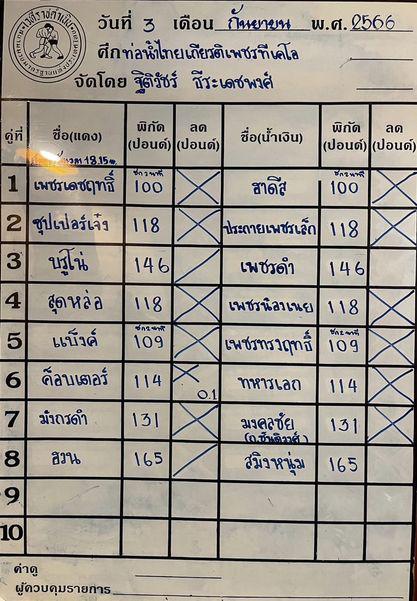 วันที่ 3 เดือน กันยายน พ.ศ. 2566
ศึก ท่อน้ำไทยเกียรติเพชรทีเคโอ
จัดโดย ฐิติวัชร์ ธีระเดชพงศ์
คู่ที่ ชื่อ(แดง) พิกัด (ปอนด์) ลด (ปอนด์) ชื่อ(น้ำเงิน) พิกัด (ปอนด์) ลด (ปอนด์)
18.15
1 เพชรเดชฤทธิ์ ชก 2 นาที 100 ฮาดีส ชก 2 นาที 100
2 ซุปเปอร์เจ๋ง 118 ประกายเพชรเล็ก 118
3 บรูโน่ 146 เพชรดำ 146
4 สุดหล่อ 118 เพชรน้องเนย 118
5 แบ็งค์ ชก 2 นาที 109 เพชรทรงฤทธิ์ ชก 2 นาที 109
6 ค็อบเตอร์ 114 0.1 ทหารเอก 114
7 มังกรดำ 131 มงคลชัย 131
8 165 สมิงหนุ่ม 165
9
10
ค่าดู
ผู้ควบคุมรายการ